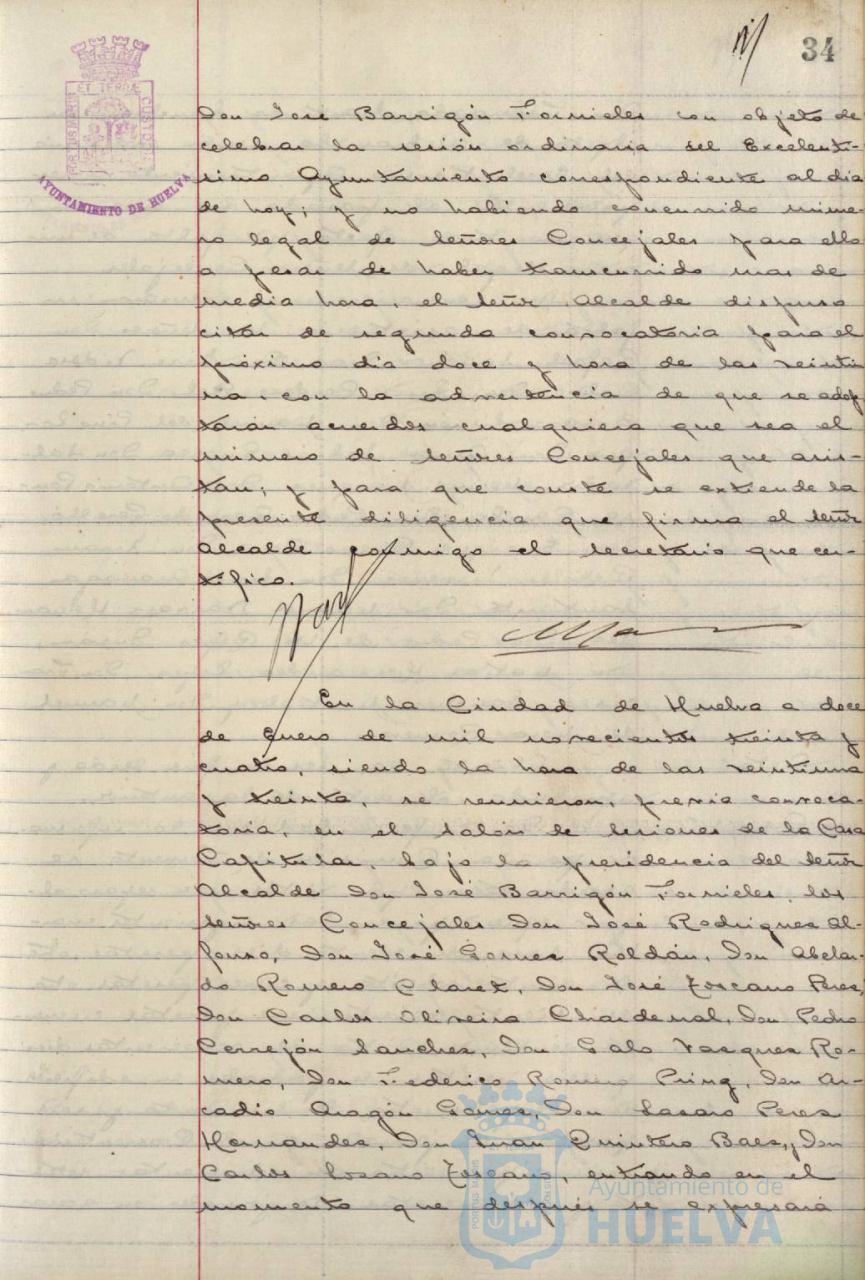 34
PORTUS MARIS ET TERRAE CUSTODIA
AYUNTAMIENTO DE HUELVA
Don José Barrigón Fornieles con objeto de
celebrar la sesión ordinaria del Excelentí-
simo Ayuntamiento correspondiente al dia
de hoy; y no habiendo concurrido núme-
ro legal de señores Concejales para ello
a pesar de haber transcurrido mas de
media hora, el señor Alcalde dispuso
citar de segunda convocatoria para el
próximo dia doce y hora de las veinti
una, con la advertencia de que se adop
tarán acuerdos cualquiera que sea el
número de señores Concejales que asis-
tan; y para que conste se extiende la
presente diligencia que firma el señor
Alcalde conmigo el Secretario que cer-
tifico.
En la Ciudad de Huelva a doce
de Enero de mil novecientos treinta y
cuatro, siendo la hora de las veintiuna
y treinta, se reunieron, previa convoca-
toria, en el salón de sesiones de la Casa
Capitular, bajo la presidencia del señor
Alcalde Don José Barrigón Fornieles, los
señores Concejales Don José Rodriguez Al-
fonso, Don José Gomez Roldán, Don Abelar-
do Romero Claret, Don José Toscano Perez,
Don Carlos Oliveira Chardenal, Don Pedro
Cerrejón Sanchez, Don Galo Vazquez Ro-
mero, Don Federico Romero Pring, Don Ar-
cadio Aragón Gomez, Don Lazaro Perez
Hernandez, Don Juan Quintero Baez, y Don
Carlos Lozano Toscano, entrando en el
momento que después se expresará
Ayuntamiento de
HUELVA